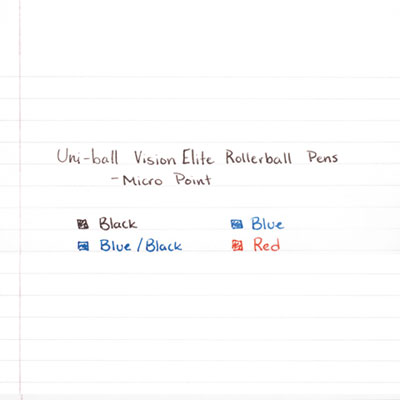 Uni-ball Vision Elite Rollerball Pens
- Micro Point
Black Blue
Blue/Black Red